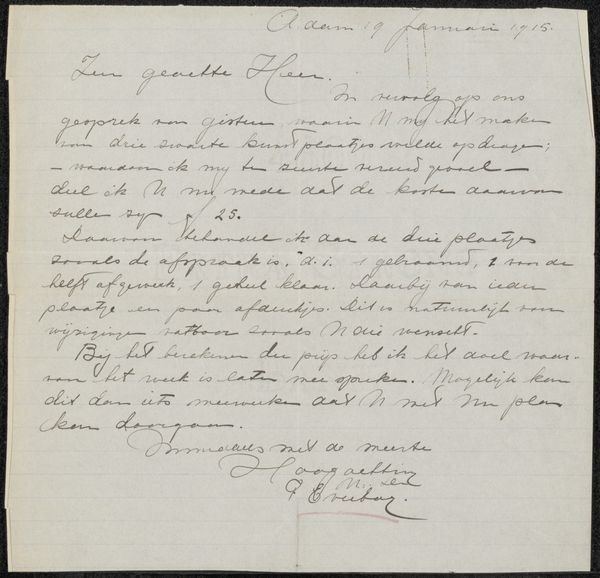 A'dam 19 Januari 1915.
Zeer geachte Heer.
In vervolg op ons
gesprek van gisteren, waarin U my het maken
van drie zwarte kunst plaatjes wilde opdragen;
– waardoor ik my ten zeerste vereerd gevoel –
deel ik U nu mede dat de kosten daarvan
zullen zyn f 25.
Daarvan behandel ik dan de drie plaatjes
zooals de afspraak is, d.i. 1 gekraamd, 1 voor de
helft afgewerkt, 1 geheel klaar. Daarbij van ieder
plaatje een paar afdrukjes. Dit is natuurlijk voor
wijzigingen vatbaar zooals U die wenscht.
Bij het berekenen der prijs heb ik het doel waar-
voor het werk is laten mee spreken. Mogelijk kan
dit dan iets meewerken dat U met Uw plan
kan doorgaan.
Inmiddels met de meeste
Hoogachting